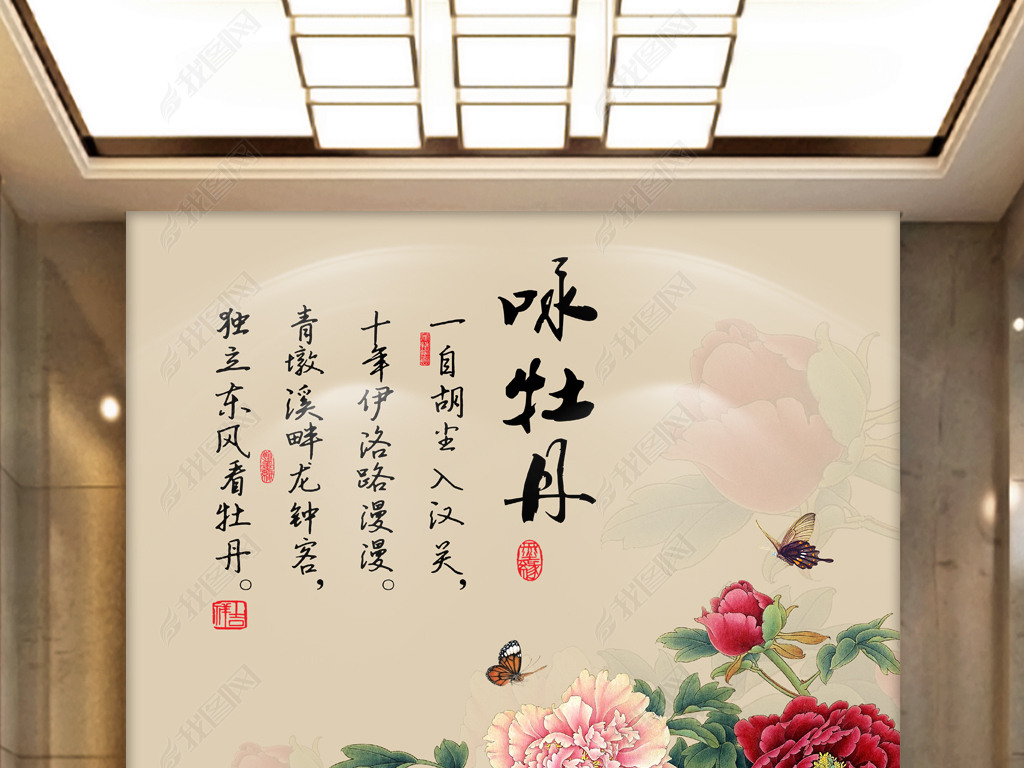 咏牡丹
一自胡尘入汉关，
十年伊洛路漫漫。
青墩溪畔龙钟客，
独立东风看牡丹。
吉祥